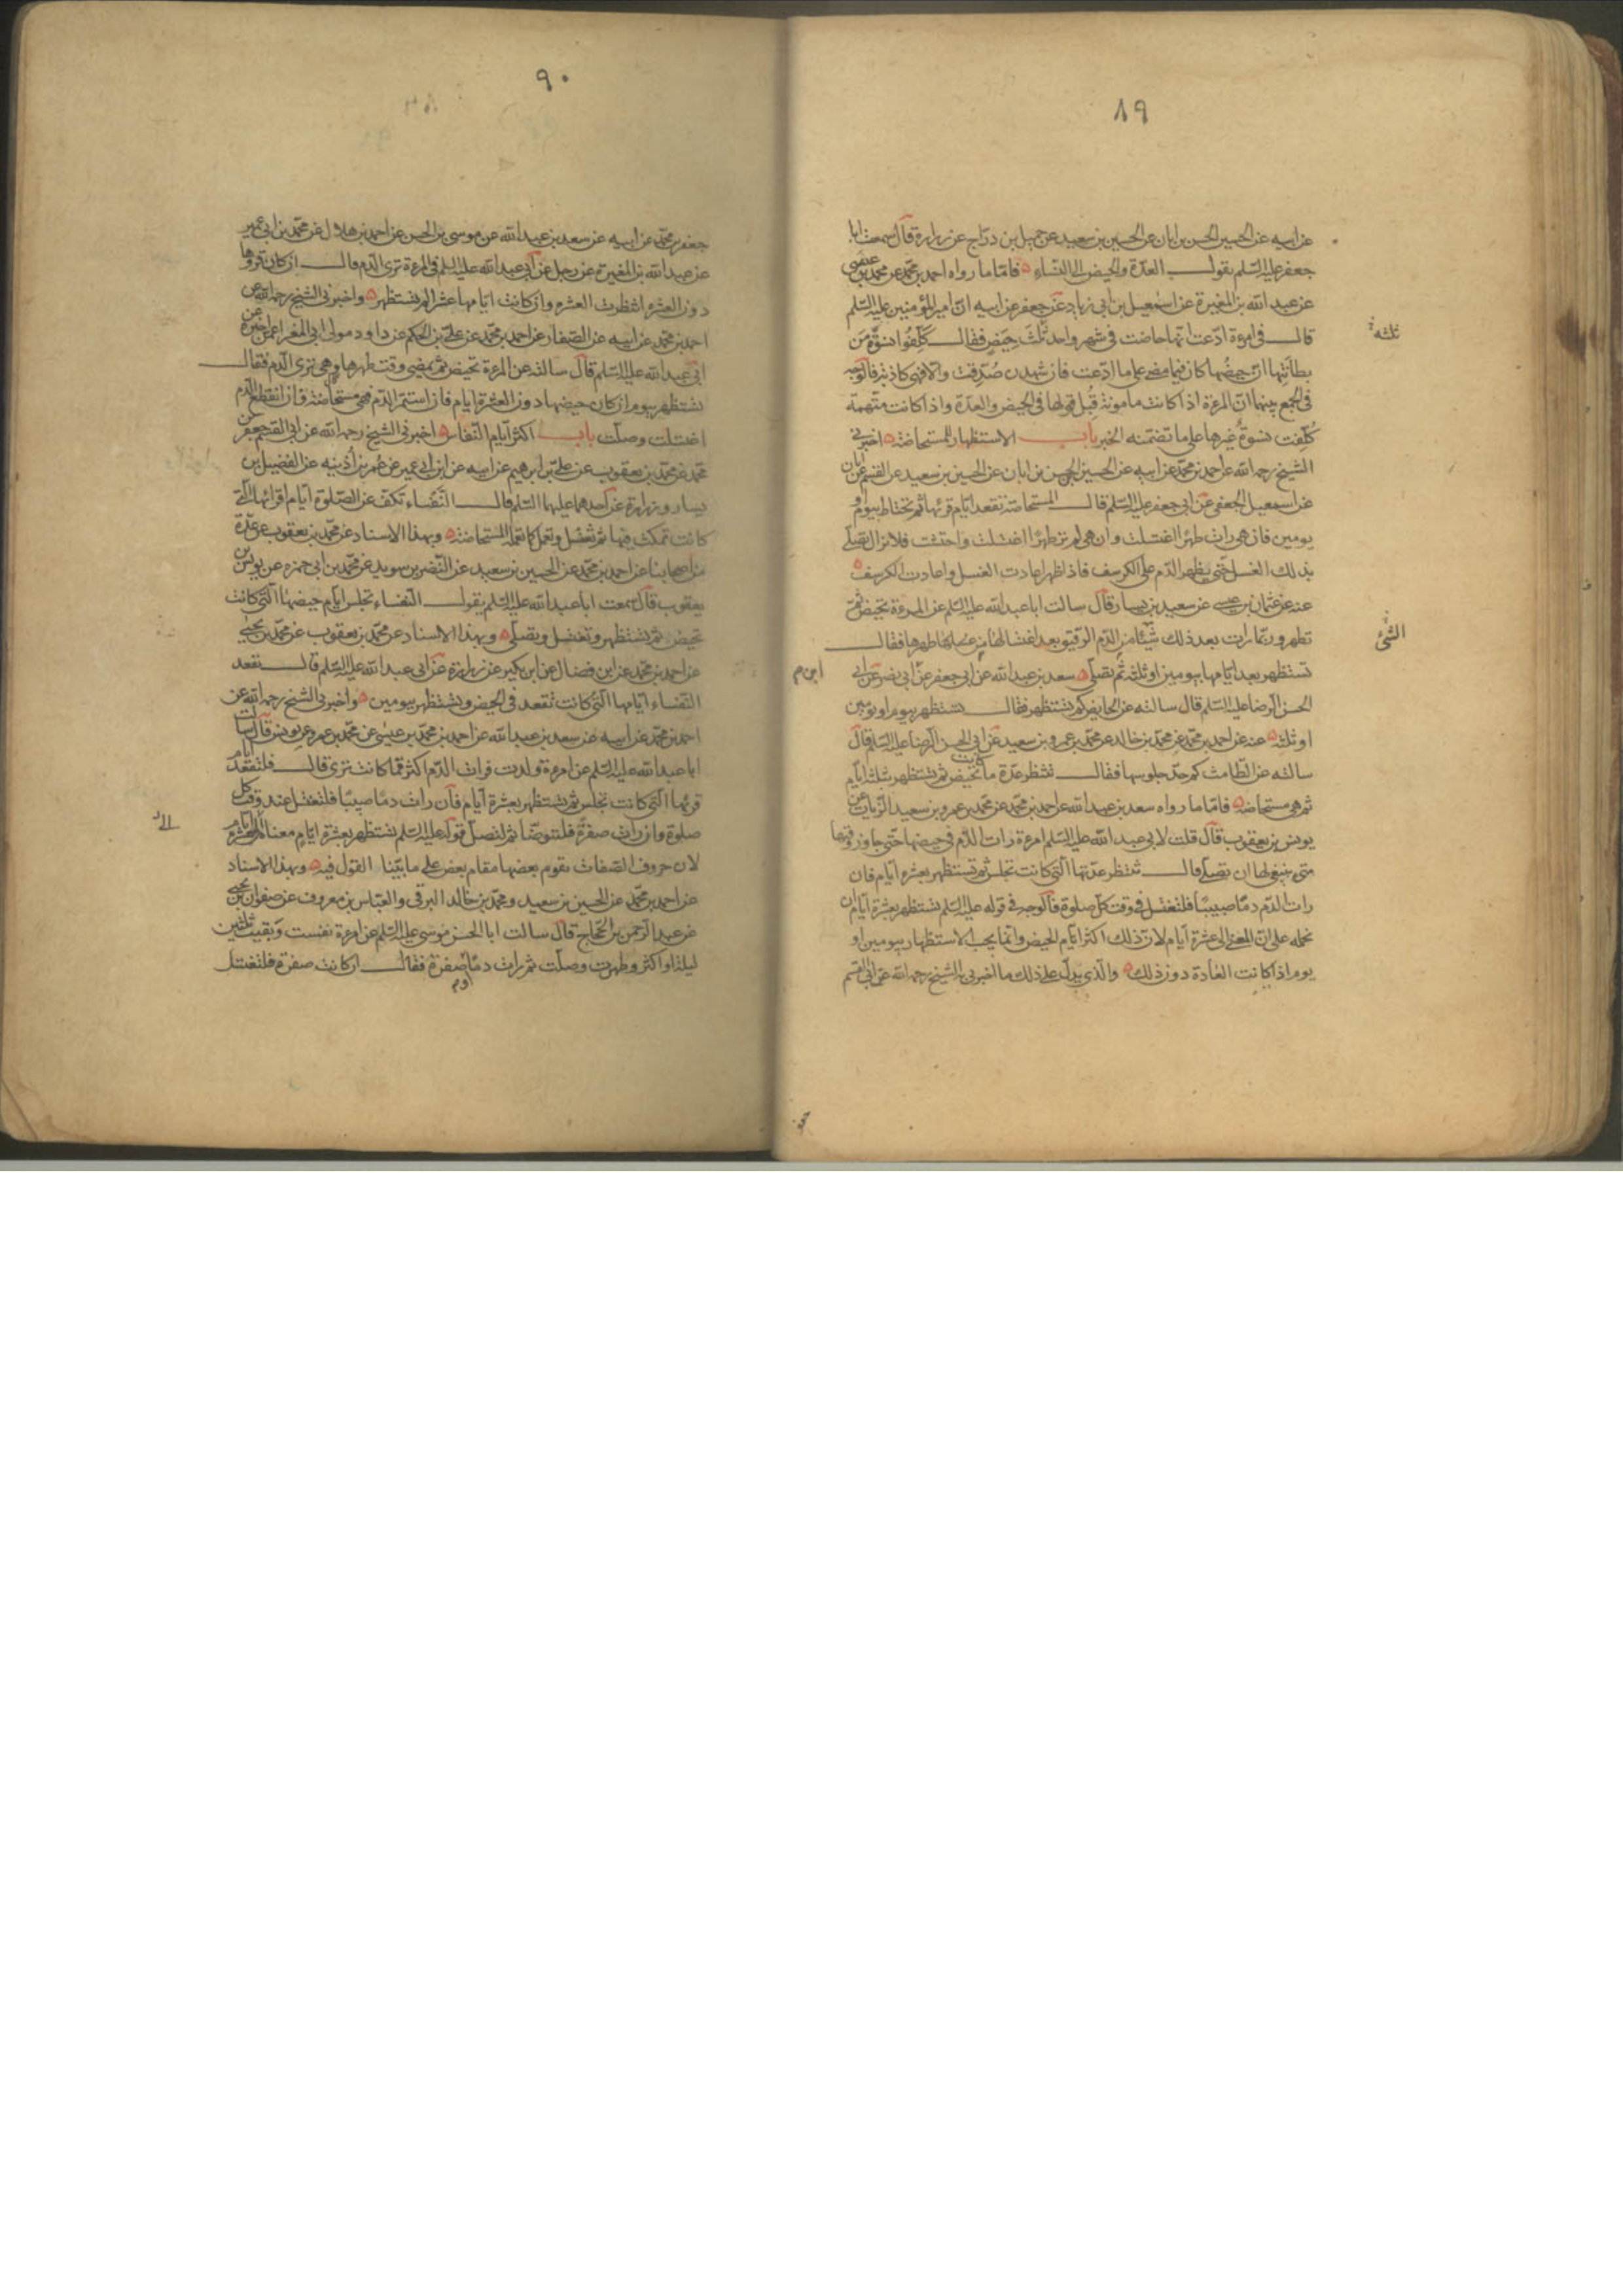 ٨٩
عن ابيه عن الحسين الحسن بن ابان عن الحسين بن سعيد عن جميل بن دراج عن زرارة قال سمعت ابا
جعفر عليه السلم يقول العدة والحيض الى النساء فاما ما رواه احمد بن محمد عن محمد بن عيسى
عن عبد الله بن المغيرة عن اسمعيل بن ابى زياد عن جعفر عن ابيه ان امير المؤمنين عليه السلم
قال فى امرءة ادعت انها حاضت فى شهر واحد ثلث حيض فقال كلفوا نسوة من
ثلثة
بطانتها ان حيضها كان فيما مضى على ما ادعت فان شهدن صدقت والا فهى كاذبة فالوجه
فى الجمع بينهما ان المرءة اذا كانت مامونة قبل قولها فى الحيض والعدة واذا كانت متهمة
كلفت نسوة غيرها على ما تضمنه الخبر باب الاستظهار للمستحاضة اخبرنى
الشيخ رحمه الله عن احمد بن محمد عن ابيه عن الحسين الحسن بن ابان عن الحسين بن سعيد عن القسم عن ابان
عن اسمعيل الجعفى عن ابى جعفر عليه السلم قال المستحاضة تقعد ايام قرئها ثم تحتاط بيوم او
يومين فان هى رات طهرا اغتسلت وان هى لم تر طهرا اغتسلت واحتشت فلا تزال تصلى
بذلك الغسل حتى يظهر الدم على الكرسف فاذا ظهر اعادت الغسل واعادت الكرسف
عنه عن عثمان بن عيسى عن سعيد بن يسار قال سالت ابا عبد الله عليه السلم عن المرءة تحيض ثم
تطهر وربما رات بعد ذلك شيئا من الدم الرقيق بعد اغتسالها من طهرها فقال
الشئ
تستظهر بعد ايامها بيومين او ثلثة ثم تصلى سعد بن عبد الله عن ابى جعفر عن ابى نصر عن ابى
ابن م
الحسن الرضا عليه السلم قال سالته عن الحايض كم تستظهر فقال تستظهر بيوم او يومين
او ثلثة عنه عن احمد بن محمد عن محمد بن خالد عن محمد بن عمرو بن سعيد عن ابى الحسن الرضا عليه السلم قال
سالته عن الطامث كم حد جلوسها فقال تنتظر عدة ما كانت تحيض ثم تستظهر بثلثة ايام
ثم هى مستحاضة فاما ما رواه سعد بن عبد الله عن احمد بن محمد عن محمد بن عمرو بن سعيد الزيات عن
يونس بن يعقوب قال قلت لابى عبد الله عليه السلم امرءة رات الدم فى حيضها حتى جاوز وقتها
متى ينبغى لها ان تصلى قال تنتظر عدتها التى كانت تجلس ثم تستظهر بعشرة ايام فان
رات الدم دما صبيبا فلتغتسل فى وقت كل صلوة فالوجه فى قوله عليه السلم تستظهر بعشرة ايام ان
نحمله على ان المعنى الى عشرة ايام لان ذلك اكثر ايام الحيض وانما يجب الاستظهار بيومين او
يوم اذا كانت العادة دون ذلك والذى يدل على ذلك ما اخبرنى به الشيخ رحمه الله عن ابى القسم
٩٠
جعفر بن محمد عن ابيه عن سعد بن عبد الله عن موسى بن الحسن عن احمد بن هلال عن محمد بن ابى عمير
عن عبد الله بن المغيرة عن رجل عن ابى عبد الله عليه السلم فى المرءة ترى الدم قال ان كان قروها
دون العشرة انتظرت العشرة وان كانت ايامها عشرا لم تستظهر واخبرنى الشيخ رحمه الله عن
احمد بن محمد عن ابيه عن الصفار عن احمد بن محمد عن على بن الحكم عن داود مولى ابى المغرا عمن اخبره عن
ابى عبد الله عليه السلم قال سالته عن المرءة تحيض ثم يمضى وقت طهرها وهى ترى الدم فقال
تستظهر بيوم ان كان حيضها دون العشرة ايام فان استمر الدم فهى مستحاضة فان انقطع الدم
اغتسلت وصلت باب اكثر ايام النفاس اخبرنى الشيخ رحمه الله عن ابى القسم جعفر بن
محمد عن محمد بن يعقوب عن على بن ابرهيم عن ابيه عن ابن ابى عمير عن عمر بن اذينه عن الفضيل بن
يسار وزرارة عن احدهما عليهما السلم قال النفساء تكف عن الصلوة ايام اقرائها التى
كانت تمكث فيها ثم تغتسل وتعمل كما تعمله المستحاضة وبهذا الاسناد عن محمد بن يعقوب عن عدة
من اصحابنا عن احمد بن محمد عن الحسين بن سعيد عن النضر بن سويد عن محمد بن ابى حمزه عن يونس بن
يعقوب قال سمعت ابا عبد الله عليه السلم يقول النفساء تجلس ايام حيضها التى كانت
تحيض ثم تستظهر وتغتسل وتصلى وبهذا الاسناد عن محمد بن يعقوب عن محمد بن يحيى
عن احمد بن محمد عن ابن فضال عن ابن بكير عن زرارة عن ابى عبد الله عليه السلم قال تقعد
النفساء ايامها التى كانت تقعد فى الحيض وتستظهر بيومين واخبرنى الشيخ رحمه الله عن
احمد بن محمد عن ابيه عن سعد بن عبد الله عن احمد بن محمد بن عيسى عن محمد بن عمرو عن يونس قال سالت
ابا عبد الله عليه السلم عن امرءة ولدت فرات الدم اكثر مما كانت ترى قال فلتقعد ايام
قرئها التى كانت تجلس ثم تستظهر بعشرة ايام فان رات دما صبيبا فلتغتسل عند وقت كل
صلوة وان رات صفرة فلتتوضا ثم لتصل قوله عليه السلم تستظهر بعشرة ايام معناه الى عشرة ايام
لان حروف الصفات تقوم بعضها مقام بعض على ما بينا القول فيه وبهذا الاسناد
عن احمد بن محمد عن الحسين بن سعيد ومحمد بن خالد البرقى والعباس بن معروف عن صفوان بن يحيى
عن عبد الرحمن بن الحجاج قال سالت ابا الحسن موسى عليه السلم عن امرءة نفست وبقيت ثلثين
ليلة او اكثر وطهرت وصلت ثم رات دما او صفرة فقال ان كانت صفرة فلتغتسل